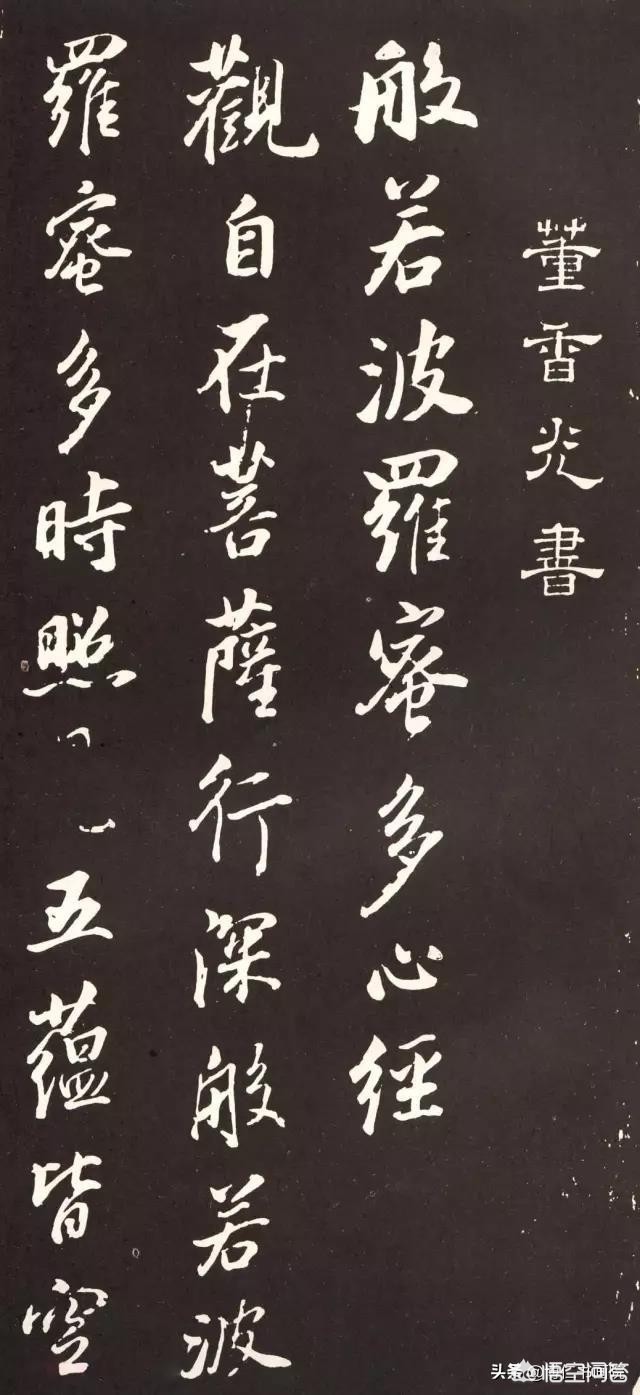 董香光書
般若波羅蜜多心經
觀自在菩薩行深般若波
羅蜜多時照五蘊皆空
悟空问答
头条